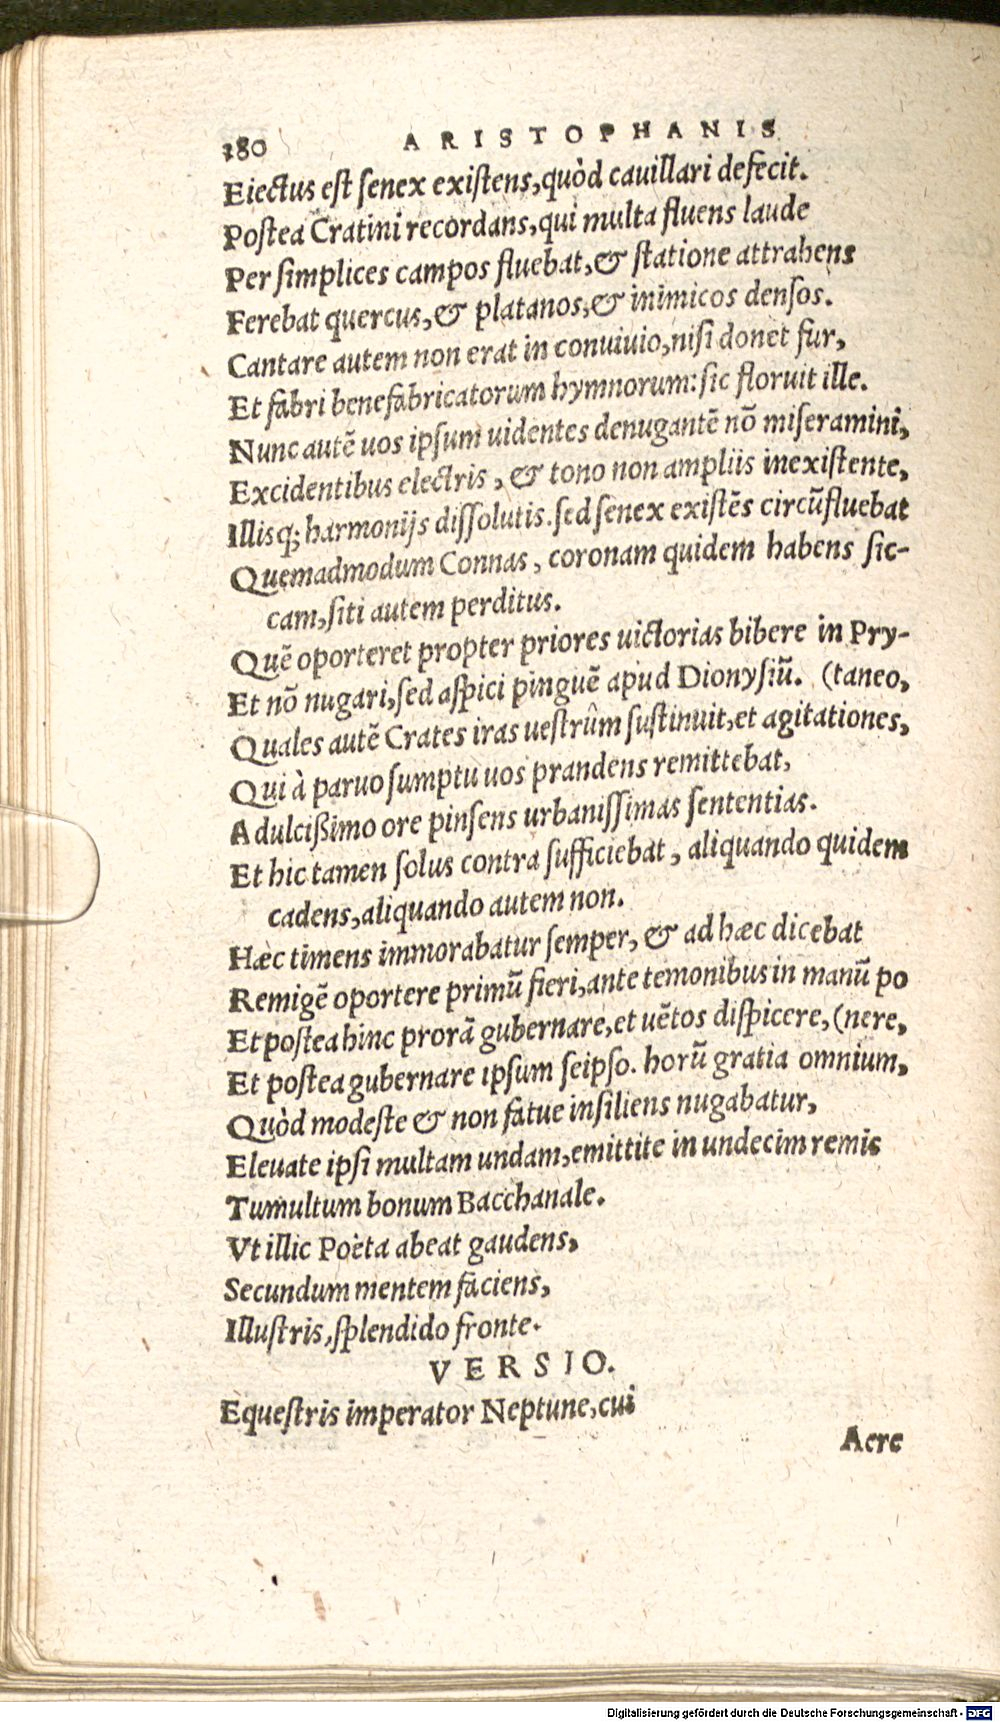 180 ARISTOPHANIS
Eiectus est senex existens, quòd cauillari defecit.
Postea Cratini recordans, qui multa fluens laude
Per simplices campos fluebat, & statione attrahens
Ferebat quercus, & platanos, & inimicos densos.
Cantare autem non erat in conuiuio, nisi donet fur,
Et fabri benefabricatorum hymnorum: sic floruit ille.
Nunc autē uos ipsum uidentes denugantē nō miseramini,
Excidentibus electris, & tono non ampliis inexistente,
Illisq; harmonijs dissolutis. sed senex existēs circūfluebat
Quemadmodum Connas, coronam quidem habens sic-
cam, siti autem perditus.
Quē oporteret propter priores uictorias bibere in Pry-
Et nō nugari, sed aspici pinguē apud Dionysiū. (taneo,
Quales autē Crates iras uestrûm sustinuit, et agitationes,
Qui à paruo sumptu uos prandens remittebat,
A dulcißimo ore pinsens urbanissimas sententias.
Et hic tamen solus contra sufficiebat, aliquando quidem
cadens, aliquando autem non.
Hæc timens immorabatur semper, & ad hæc dicebat
Remigē oportere primū fieri, ante temonibus in manū po
Et postea hinc prorā gubernare, et uētos dispicere, (nere,
Et postea gubernare ipsum seipso. horū gratia omnium,
Quòd modeste & non fatue insiliens nugabatur,
Eleuate ipsi multam undam, emittite in undecim remis
Tumultum bonum Bacchanale.
Vt illic Poëta abeat gaudens,
Secundum mentem faciens,
Illustris, splendido fronte.
VERSIO.
Equestris imperator Neptune, cui
Aere
Digitalisierung gefördert durch die Deutsche Forschungsgemeinschaft - DFG